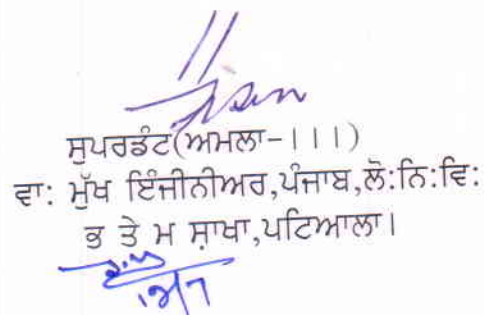 ਸੁਪਰਡੰਟ(ਅਮਲਾ-।।।)
ਵਾ: ਮੁੱਖ ਇੰਜੀਨੀਅਰ,ਪੰਜਾਬ,ਲੋ:ਨਿ:ਵਿ:
ਭ ਤੇ ਮ ਸ਼ਾਖਾ,ਪਟਿਆਲਾ।